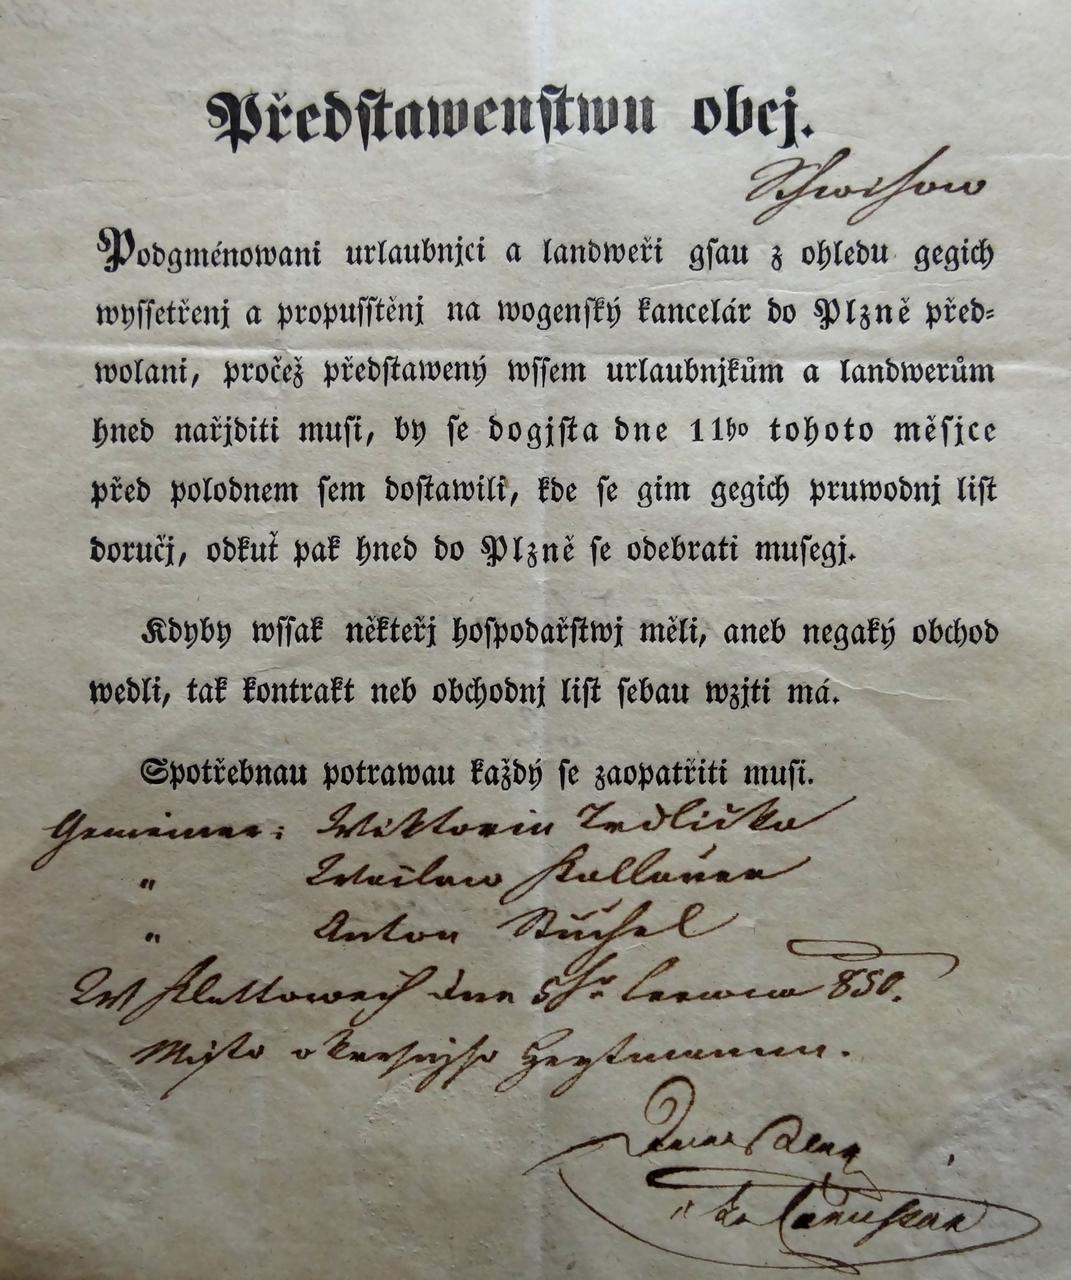 Předstawenstwu obcj.
Schwihow
Podgménowani urlaubnjci a landweři gsau z ohledu gegich
wyssetřenj a propusstěnj na wogenský kancelár do Plzně před-
wolani, pročež předstawený wssem urlaubnjkům a landwerům
hned nařjditi musi, by se dogjsta dne 11ho tohoto měsjce
před polodnem sem dostawili, kde se gim gegich pruwodnj list
doručj, odkuť pak hned do Plzně se odebrati musegj.
Kdyby wssak někteřj hospodařstwj měli, aneb negaký obchod
wedli, tak kontrakt neb obchodnj list sebau wzjti má.
Spotřebnau potrawau každý se zaopatřiti musi.
Gemeiner: Wiktorin Trdlička
" Waclaw
" Anton
W Klattowech dne 5ho 850.
Mjsto okresnjho Heytmanna.